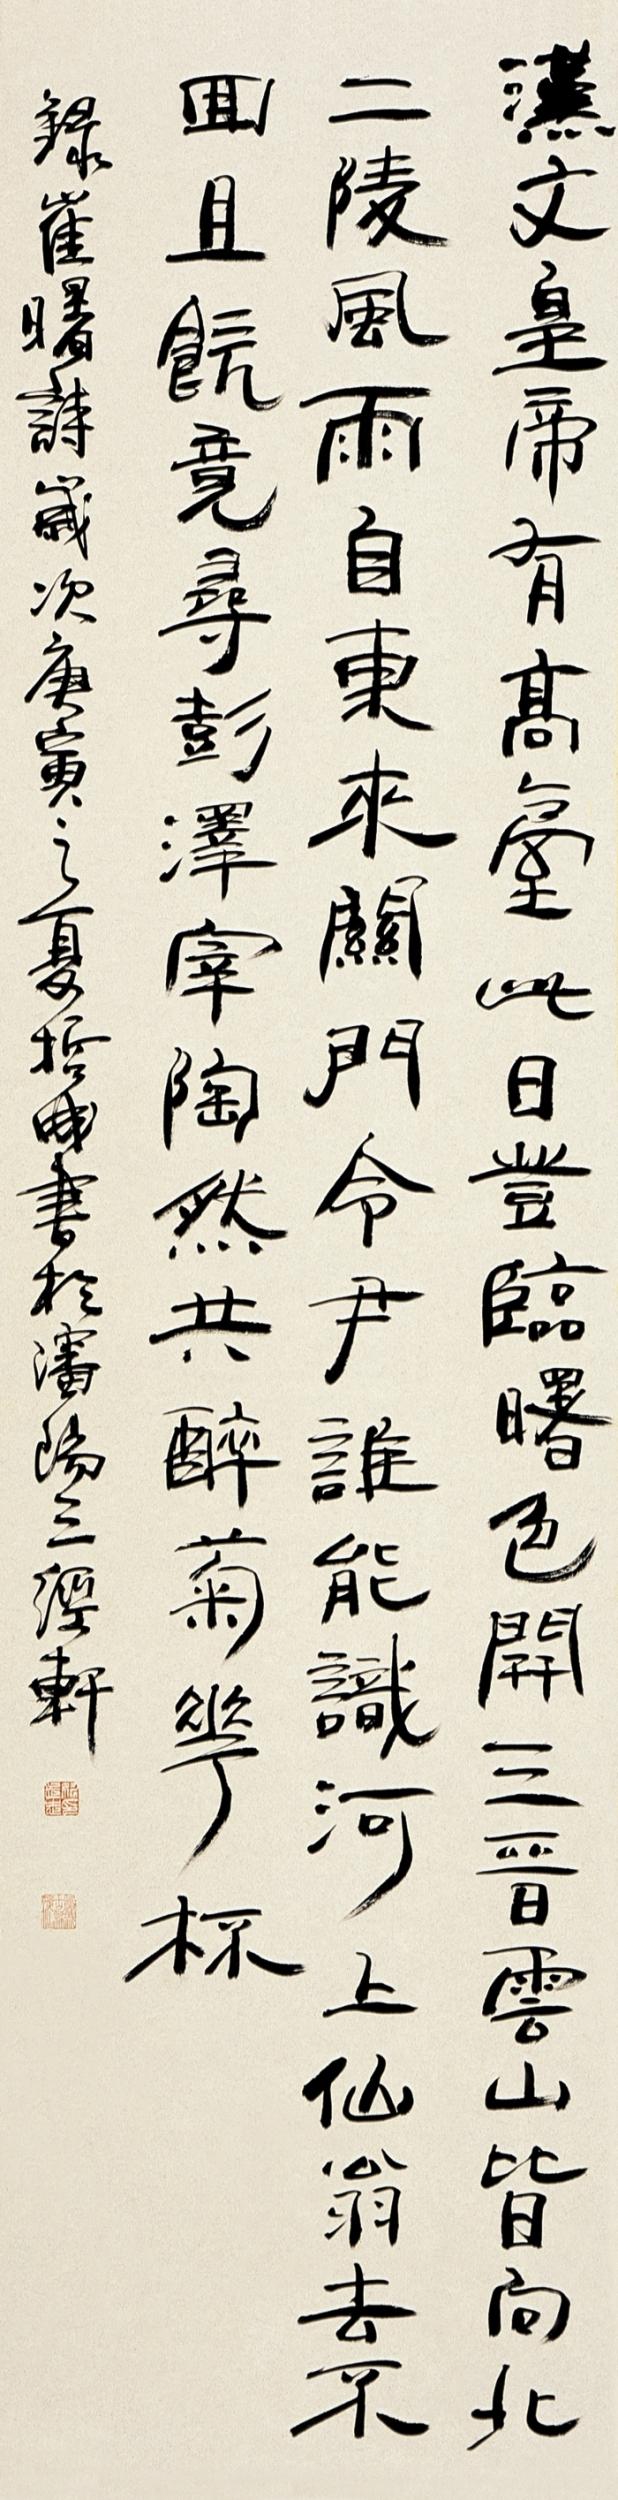 漢文皇帝有高臺此日豈臨曙色開三晉雲山皆向北
二陵風雨自東來關門令尹誰能識河上仙翁去不
回且飲竟尋彭澤宰陶然共醉菊花杯
錄崔曙詩歲次庚寅之夏哲晟書於瀋陽三經軒